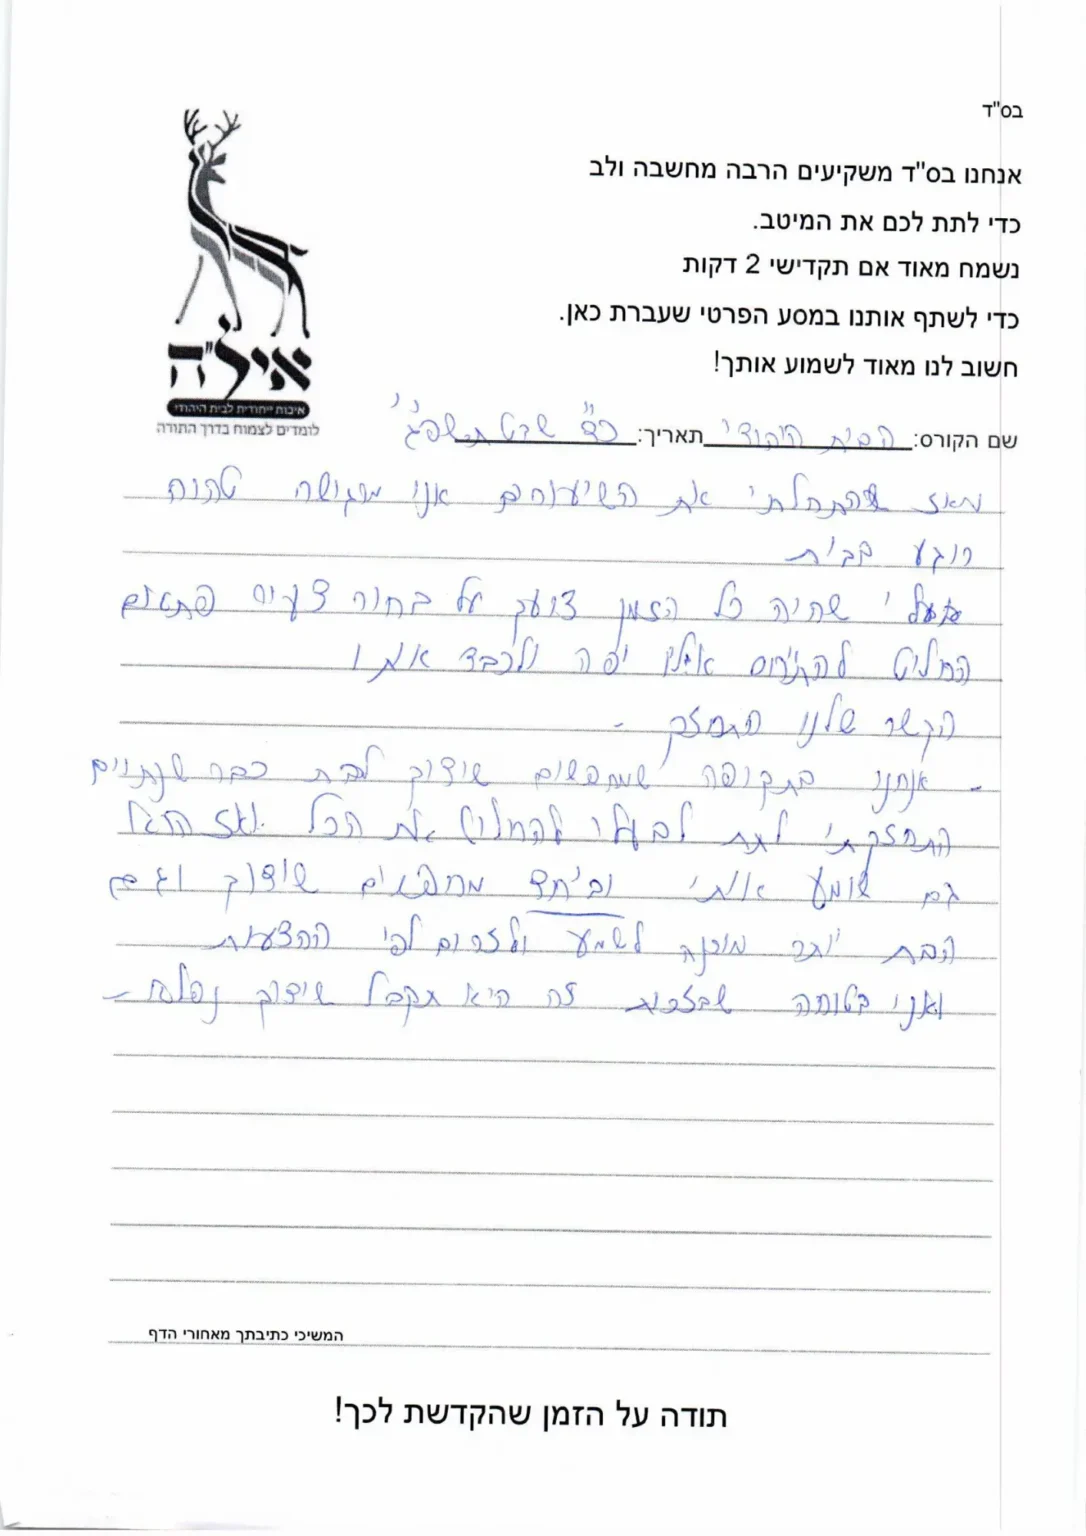 בס"ד
אנחנו בס"ד משקיעים הרבה מחשבה ולב
כדי לתת לכם את המיטב.
נשמח מאוד אם תקדישי 2 דקות
כדי לשתף אותנו במסע הפרטי שעברת כאן.
חשוב לנו מאוד לשמוע אותך!
איל"ה
איכות ייחודית לבית היהודי
לומדים לצמוח בדרך התורה
שם הקורס: הבית היהודי תאריך: כד" שבט תשפג'
מאז שהתחלתי את השיעורים אני מרגישה
רוגע בבית
בעלי שהיה כל הזמן צועק על בחור צעיר פתאום
החליט להתייחס אליו יפה ולכבד אותו
הקשר שלנו התחזק -
- אנחנו בתקופה שמחפשים שידוך לבת כבר שנתיים
התחזקתי לתת לבעלי להחליט את הכל ואז
גם שומע אותי וביחד מחפשים שידוך וגם
הבת יותר מוכנה לשמע ולזרום לפי ההצעות
ואני בטוחה שבזכות זה היא תקבל שידוך נפלא -
המשיכי כתיבתך מאחורי הדף
תודה על הזמן שהקדשת לכך!